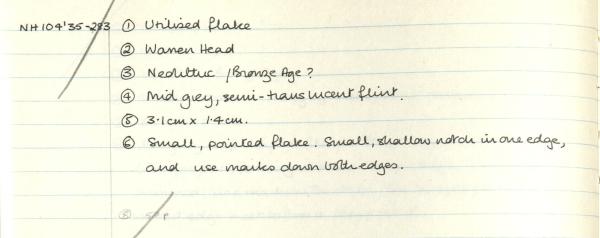 NH104'35-283 ① Utilised flake
② Warren Head
③ Neolithic / Bronze Age?
④ Mid grey, semi-translucent flint.
⑤ 3.1cm x 1.4cm.
⑥ Small, pointed flake. Small, shallow notch in one edge,
and use marks down both edges.
⑧